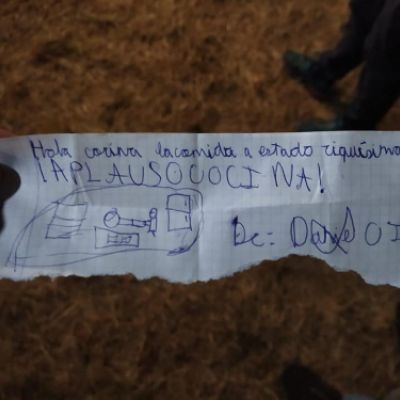 Hola cocina lacomida a estado riquísima
¡APLAUSOCOCINA!
De: Darío